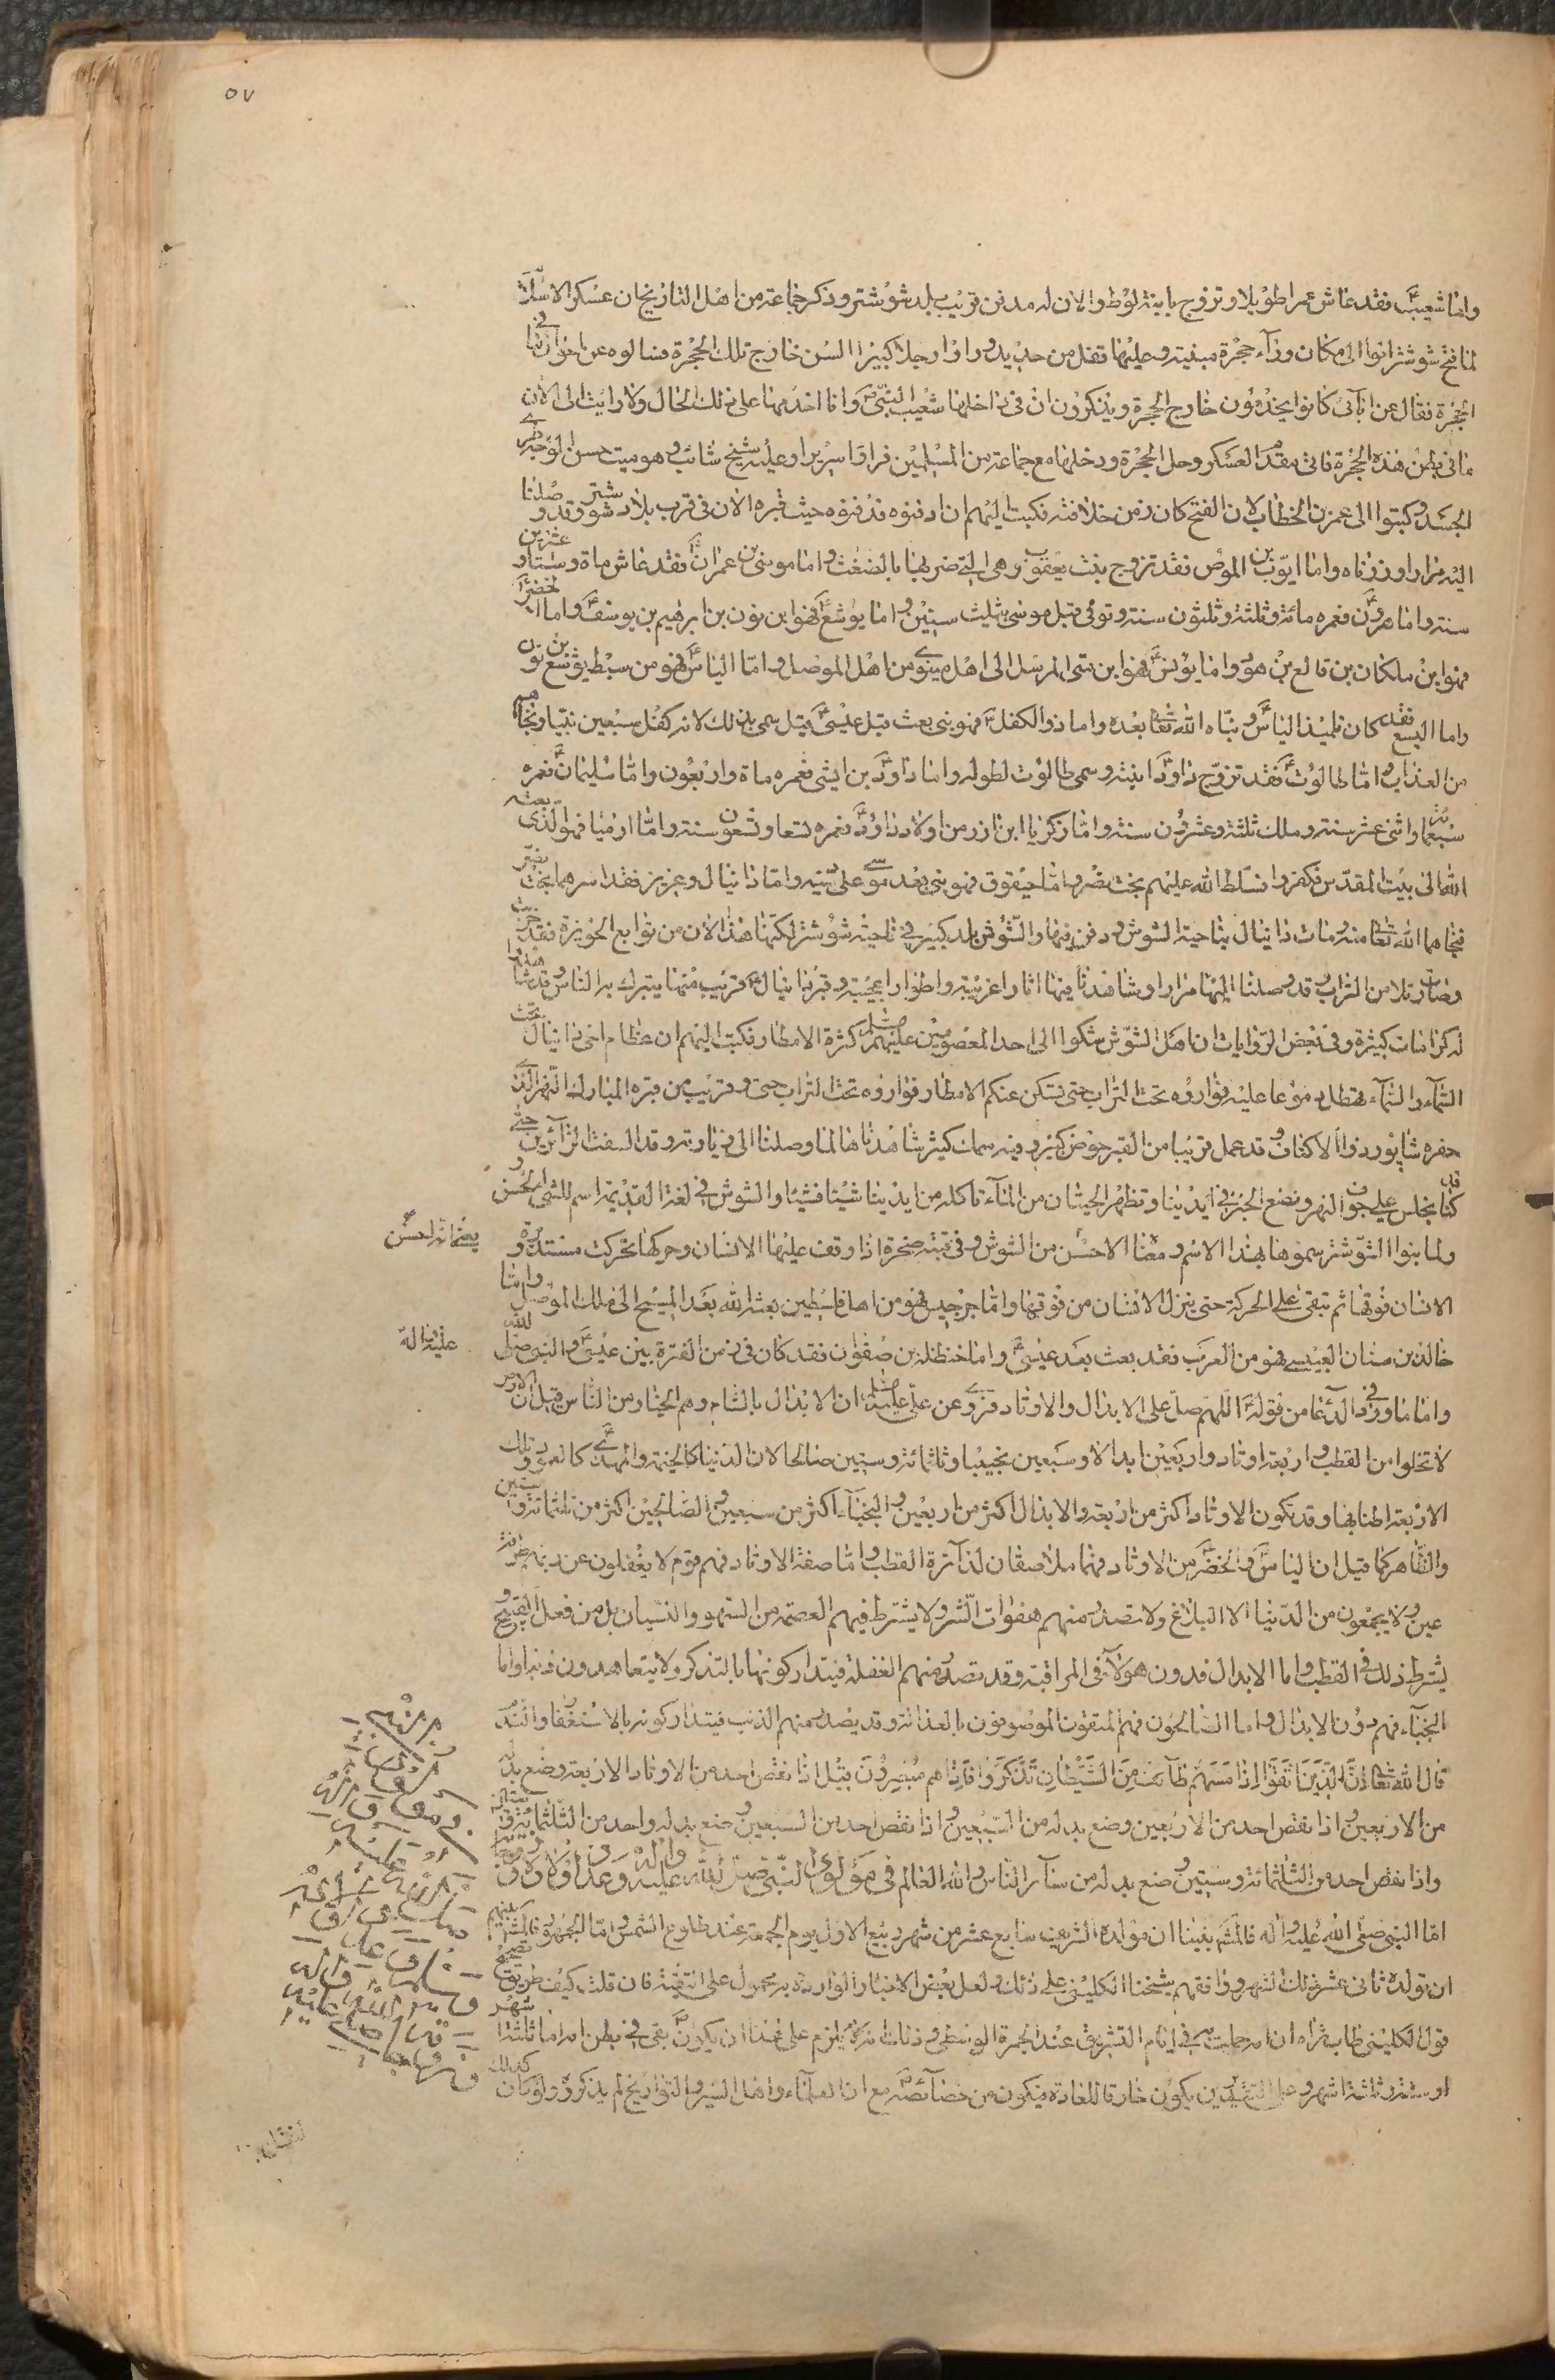 ٥٧
واما شعيب ع فقد عاش عمرا طويلا وتزوج بابنة لوط والان له مدفن قريب بلد شوشتر وذكر جماعة من اهل التاريخ ان عسكر الاسلام
لما فتح شوشتر اتوا الى مكان وراء حجرة مبنية وعليها قفل من حديد وراوا رجلا كبير السن خارج تلك الحجرة فسالوه عن احوال ما في
الحجرة فقال عن ابائي كانوا يخدمون خارج الحجرة ويذكرون ان في داخلها شعيب النبي ع وانا اخدمها على ذلك الحال ولا رايت الى الان
ما في بطن هذه الحجرة فاتى مقدم العسكر وحل الحجرة ودخلها مع جماعة من المسلمين فراوا سريرا وعليه شيخ شائب وهو ميت حسن الوجه طرى
الجسد وكتبوا الى عمر بن الخطاب لان الفتح كان زمن خلافته فكتب اليهم ان ادفنوه فدفنوه حيث قبره الان في قرب بلاد شوشتر وقد وصلنا
اليه مزارا وزرناه واما ايوب بن الموص فقد تزوج بنت يعقوب وهى التي ضربها بالضغث واما موسى بن عمران ع فقد عاش ماة وستا وعشرين
سنة واما هرون ع فعمره مائة وثلثة وثلثون سنة وتوفى قبل موسى بثلث سنين واما يوشع ع فهو ابن نون بن ابرهيم بن يوسف ع واما الخضر ع
فهو ابن ملكان بن قالع بن هود واما يونس ع فهو ابن متى المرسل الى اهل نينوى من اهل الموصل واما الياس ع فهو من سبط يوشع بن نون
واما اليسع فقد كان تلميذ الياس ع ونباه الله تعا بعده واما ذو الكفل ع فهو نبي بعث قبل عيسى ع قيل سمى بذلك لانه كفل سبعين نبيا ونجاهم
من العذاب واما طالوت ع فقد تزوج داود ع ابنته وسمى طالوت لطوله واما داود ع بن ايشى فعمره ماة واربعون واما سليمان ع فعمره
سبعماة واثنى عشر سنة وملك ثلثة وعشرون سنة واما زكريا ابن ازر من اولاد داود ع فعمره تسعا وتسعون سنة واما ارميا فهو الذى بعثه
الله الى بيت المقدس فكفروا فسلط الله عليهم بخت نصر واما حيقوق فهو نبي بعد موسى على دينه واما دانيال وعزير فقد اسرهما بخت نصر
فنجاهما الله تعا منه ومات دانيال بناحية الشوش ودفن فيها والشوش بلد كبير في ناحية شوشتر لكنها هذا الان من توابع الحويزة فقد خربت
وصارت تلا من التراب وقد وصلنا اليها مزارا وشاهدنا فيها اثارا غريبة واطوارا عجيبة وقبر دانيال ع قريب منها يتبرك به الناس وقد شاهدوا
له كرامات كثيرة وفي بعض الروايات ان اهل الشوش شكوا الى احد المعصومين عليهم السلام كثرة الامطار فكتب اليهم ان عظام اخى دانيال تحت
السماء والسماء تهطل دموعا عليه فواروه تحت التراب حتى يسكن عنكم الامطار فواروه تحت التراب حتى وقريب من قبره المبارك النهر الذى
حفره شاپور ذو الاكتاف وقد عمل قريبا من القبر حوض كبير وفيه سماك كثير شاهدناها لما وصلنا الى زيارته وقد الفت الزائرين حتى
كنا نجلس على جوف النهر ونضع الخبز في ايدينا وتظهر الحيتان من الماء تاكله من ايدينا شيئا فشيئا والشوش في لغة القديمة اسم للشى الحسن
ولما بنوا الشوشتر سموها بهذا الاسم ومعنا الاحسن من الشوش وفي قبته صخرة اذا وقف عليها الانسان وحركها تحركت مستديرة و
الانسان فوقها ثم تبقى على الحركة حتى ينزل الانسان من فوقها واما جرجيس فهو من اهل فلسطين بعثه الله بعد المسيح الى ملك الموصل واما
خالد بن سنان العبيسى فهو من العرب فقد بعث بعد عيسى ع واما حنظلة بن صفوان فقد كان في زمن الفترة بين عيسى ع والنبي صلى الله
عليه واله
واما ما ورد في الدعا من قوله ع اللهم صل على الابدال والاوتاد فروى عن على عليه السلام ان الابدال بالشام وهم الخيار من الناس قيل ان الارض
لا تخلوا من القطب واربعة اوتاد واربعين ابدالا وسبعين نجيبا وثلثمائة وستين صالحا لان الدنيا كالخيمة والمهدى ع كالعمود وتلك
الاربعة اطنابها وقد تكون الاوتاد اكثر من اربعة والابدال اكثر من اربعين والنجباء اكثر من سبعين والصالحين اكثر من ثلثمائة وستين
والظاهر كما قيل ان الياس ع والخضر ع من الاوتاد فهما ملاصقان لدائرة القطب واما صفة الاوتاد فهم قوم لا يغفلون عن ربهم طرفة
عين ولا يجمعون من الدنيا الا البلاغ ولا تصدر منهم هفوات الشر ولا يشترط فيهم العصمة من السهو والنسيان بل من فعل القبيح و
يشترط ذلك في القطب واما الابدال فدون هؤلاء في المراقبة وقد تصدر منهم الغفلة فيتداركونها بالتذكر ولا يتعاهدون ذنبا واما
النجباء فهم دون الابدال واما الصالحون فهم المتقون الموصوفون بالعدالة وقد يصدر منهم الذنب فيتداركونه بالاستغفار والندم
قال الله تعا ان الذين اتقوا اذا مسهم طائف من الشيطان تذكروا فاذا هم مبصرون قيل اذا نقص احد من الاوتاد الاربعة وضع بدله
من الاربعين واذا نقص احد من الاربعين وضع بدله من السبعين واذا نقص احد من السبعين وضع بدله واحد من الثلثمائة وستين
واذا نقص احد من الثلثمائة وستين وضع بدله من سائر الناس والله العالم في مولود النبي صلى الله عليه واله وعدد اولاده
اما النبي صلى الله عليه واله فالمشهور بيننا ان مولده الشريف سابع عشر من شهر ربيع الاول يوم الجمعة عند طلوع الشمس واما الجمهور فاكثرهم
ان تولده ثانى عشر ذلك الشهر ووافقهم شيخنا الكليني على ذلك ولعل بعض الاخبار الواردة به محمول على التقية فان قلت كيف طريق تصحيح
قول الكليني طاب ثراه ان امه حملت به في ايام التشريق عند الجمرة الوسطى وذلك انه يلزم على هذا ان يكون ع بقى في بطن امه اما ثلثة اشهر
او سنة وثلثة اشهر وعلى التقديرين يكون خارقا للعادة فيكون من خصائصه ع مع ان العلماء واهل السير والتواريخ لم يذكروه ولو كان كذلك
لنقل